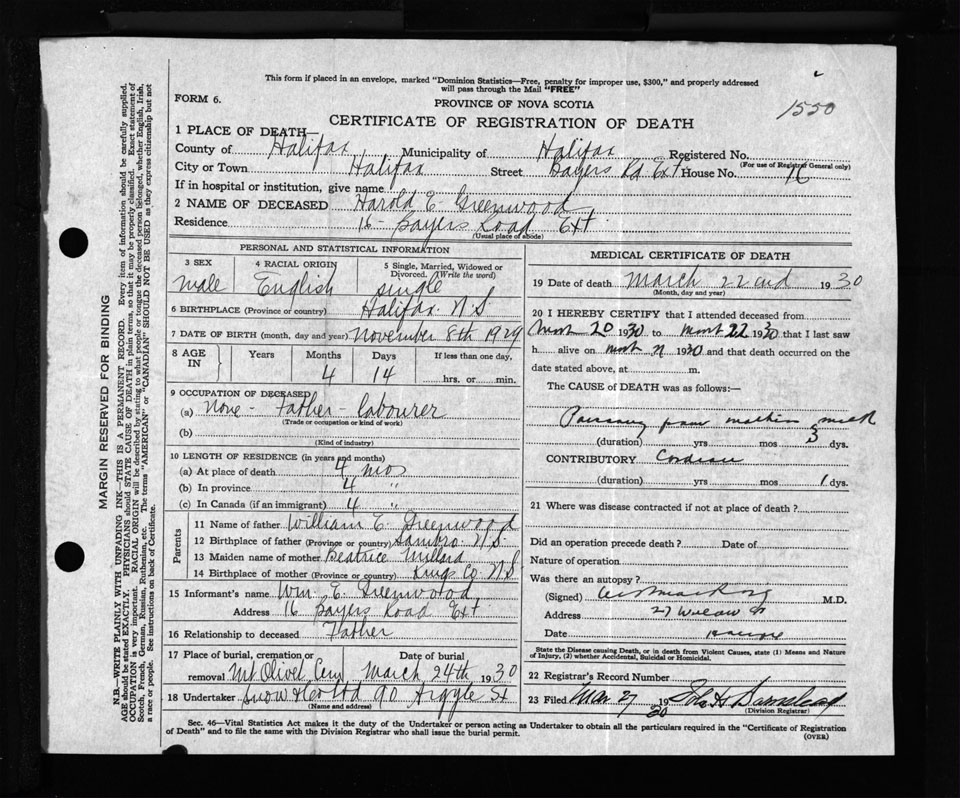 This form if placed in an envelope, marked "Dominion Statistics—Free, penalty for improper use, $300," and properly addressed
will pass through the Mail "FREE"
1550
FORM 6.
PROVINCE OF NOVA SCOTIA
CERTIFICATE OF REGISTRATION OF DEATH
1 PLACE OF DEATH—
County of Halifax Municipality of Halifax Registered No.
(For use of Registrar General only)
City or Town Halifax Street Bayers Rd Ext House No. 16
If in hospital or institution, give name
2 NAME OF DECEASED Harold E Greenwood
Residence 16 Bayers Road Ext
(Usual place of abode)
PERSONAL AND STATISTICAL INFORMATION
3 SEX 4 RACIAL ORIGIN 5 Single, Married, Widowed or Divorced. (Write the word)
male English single
6 BIRTHPLACE (Province or country) Halifax N.S.
7 DATE OF BIRTH (month, day and year) November 8th 1929
8 AGE IN Years Months Days If less than one day,
4 14 hrs. or min.
9 OCCUPATION OF DECEASED
(a) None - Father - labourer
(Trade or occupation or kind of work)
(b)
(Kind of industry)
10 LENGTH OF RESIDENCE (in years and months)
(a) At place of death 4 mos
(b) In province 4 "
(c) In Canada (if an immigrant) 4 "
Parents
11 Name of father William E. Greenwood
12 Birthplace of father (Province or country) Sambro N.S.
13 Maiden name of mother Beatrice Millard
14 Birthplace of mother (Province or country) Kings Co N.S
15 Informant's name Wm. E. Greenwood
Address 16 Bayers Road Ext
16 Relationship to deceased Father
17 Place of burial, cremation or removal Date of burial
Mt Olivet Cem March 24th 1930
18 Undertaker Snow & Co Ltd 90 Argyle St
(Name and address)
MEDICAL CERTIFICATE OF DEATH
19 Date of death March 22nd 1930
(Month, day and year)
20 I HEREBY CERTIFY that I attended deceased from
20 1930 to 22 1930 that I last saw
h alive on 1930 and that death occurred on the
date stated above, at m.
The CAUSE of DEATH was as follows:—
from milk
(duration) yrs mos 3 dys.
CONTRIBUTORY
(duration) yrs mos 1 dys.
21 Where was disease contracted if not at place of death?
Did an operation precede death? Date of
Nature of operation
Was there an autopsy?
(Signed) M.D.
Address 27 Willow St
Date
State the Disease causing Death, or in death from Violent Causes, state (1) Means and Nature
of Injury, (2) whether Accidental, Suicidal or Homicidal.
22 Registrar's Record Number
23 Filed Mar 27 1930
(Division Registrar)
Sec. 46—Vital Statistics Act makes it the duty of the Undertaker or person acting as Undertaker to obtain all the particulars required in the "Certificate of Registration
of Death" and to file the same with the Division Registrar who shall issue the burial permit.
(OVER)
MARGIN RESERVED FOR BINDING
N.B.—WRITE PLAINLY WITH UNFADING INK—THIS IS A PERMANENT RECORD. Every item of information should be carefully supplied.
AGE should be stated EXACTLY. PHYSICIANS should STATE CAUSE OF DEATH in plain terms, so that it may be properly classified. Exact statement of
OCCUPATION is very important. RACIAL ORIGIN will be described by stating to what people or tongue the deceased person belonged, whether English, Irish,
Scotch, French, German, Russian, Ruthenian, etc. The terms "AMERICAN" or "CANADIAN" SHOULD NOT BE USED as they express citizenship but not
a race or people. See instructions on back of Certificate.